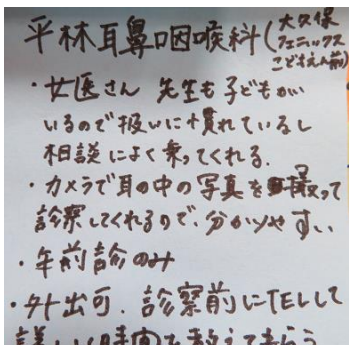 平林耳鼻咽喉科(大久保
フェニックス
こども園前)
・女医さん 先生も子どもがい
いるので扱いに慣れているし
相談によく乗ってくれる.
・カメラで耳の中の写真を撮って
診察してくれるので、分かりやすい
・午前診のみ
・外出可. 診察前にTELして
詳しい時間を教えてもらう